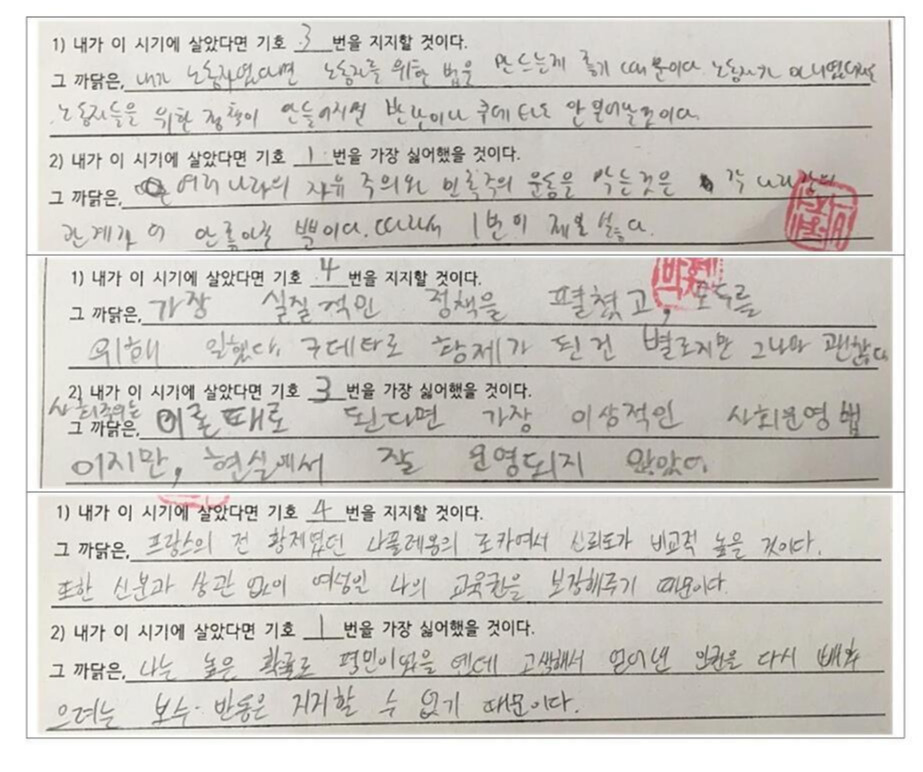 1) 내가 이 시기에 살았다면 기호 3 번을 지지할 것이다.
그 까닭은, 내가 노동자였다면 노동자를 위한 법을 만드는게 좋기 때문이다. 노동자가 아니였다해도
노동자들을 위한 정책이 만들어지면 반란이나 쿠데타도 안 일어날 것이다.
2) 내가 이 시기에 살았다면 기호 1 번을 가장 싫어했을 것이다.
그 까닭은, 여러 나라의 자유주의와 민족주의 운동을 막는것은 각 나라간의
관계가 더 안 좋아질 뿐이다. 따라서 1번이 제일 싫다.
1) 내가 이 시기에 살았다면 기호 4 번을 지지할 것이다.
그 까닭은, 가장 실질적인 정책을 펼쳤고, 모두를
위해 일했다. 쿠데타로 황제가 된 건 별로지만 그나마 괜찮다
2) 내가 이 시기에 살았다면 기호 3 번을 가장 싫어했을 것이다.
사회주의는
그 까닭은, 이론대로 된다면 가장 이상적인 사회운영법
이지만, 현실에서 잘 운영되지 않았어
1) 내가 이 시기에 살았다면 기호 4 번을 지지할 것이다.
그 까닭은, 프랑스의 전 황제였던 나폴레옹의 조카여서 신뢰도가 비교적 높을 것이다.
또한 신분과 상관 없이 여성인 나의 교육권을 보장해주기 때문이다.
2) 내가 이 시기에 살았다면 기호 1 번을 가장 싫어했을 것이다.
그 까닭은, 나는 높은 확률로 평민이었을 텐데 고생해서 얻어낸 인권을 다시
으려는 보수·반동은 지지할 수 없기 때문이다.